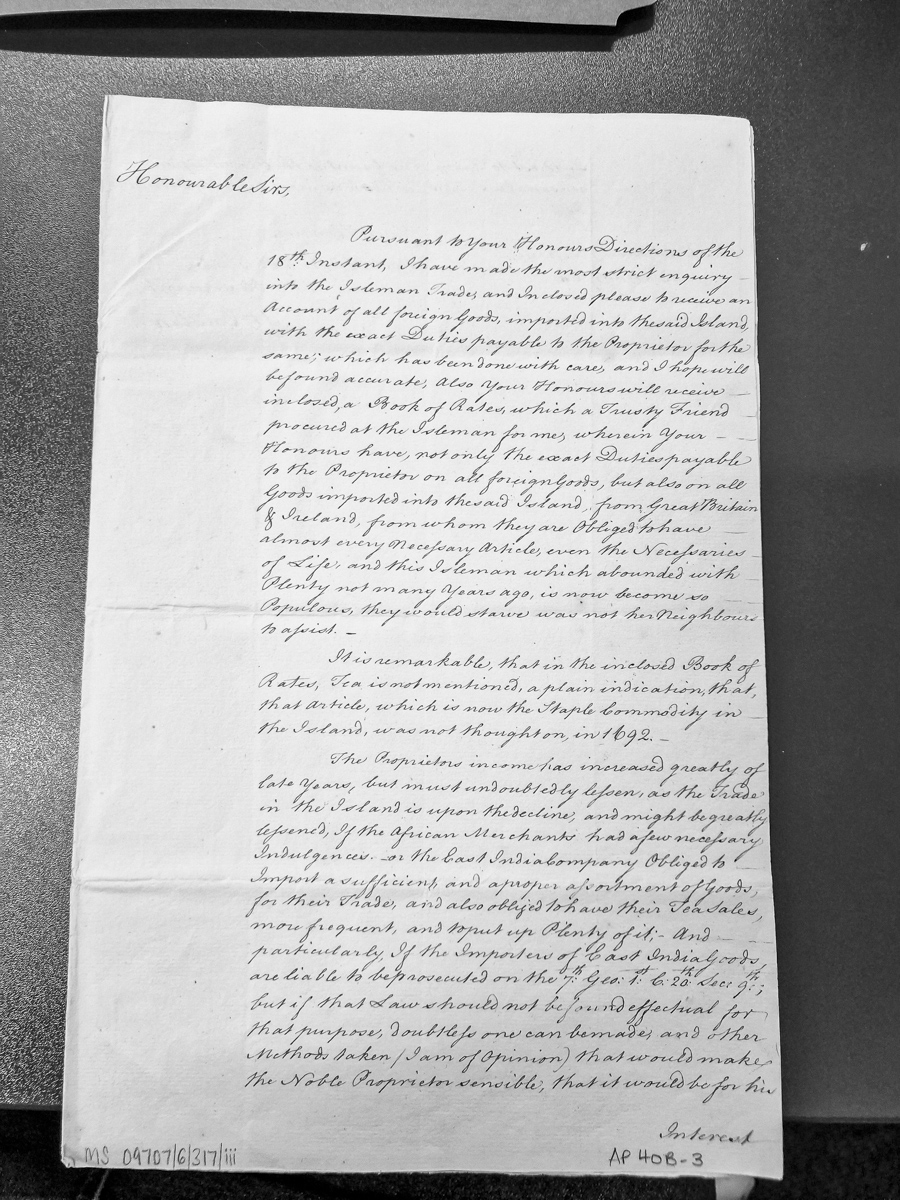 Honourable Sirs,
Pursuant to Your Honours Directions of the
18th: Instant, I have made the most strict enquiry —
into the Isleman Trade, and Inclosed please to receive an
Account of all foreign Goods, imported into the said Island,
with the exact Duties payable to the Proprietor for the
same; which has been done with care, and I hope will
be found accurate, Also Your Honours will receive —
inclosed, a Book of Rates, which a Trusty Friend —
procured at the Isleman for me, wherein Your — —
Honours have, not only the exact Duties payable
to the Proprietor on all foreign Goods, but also on all
Goods imported into the said Island, from Great Britain
& Ireland, from whom they are Obliged to have —
almost every Necessary Article, even the Necessaries —
of Life, and this Isleman which abounded with
Plenty not many Years ago, is now become so —
Populous, they would starve was not her Neighbours
to assist. —
It is remarkable, that in the inclosed Book of
Rates, Tea is not mentioned, a plain indication, that,
that Article, which is now the Staple Commodity in —
the Island, was not thought on, in 1692. —
The Proprietors income has increased greatly of
late Years, but must undoubtedly lessen, as the Trade
in the Island is upon the decline, and might be greatly
lessened, If the African Merchants had a few necessary
Indulgences. — or the East India Company Obliged to
Import a sufficient, and a proper assortment of Goods,
for their Trade, and also obliged to have their Tea Sales,
more frequent, and to put up Plenty of it; — And — —
particularly, If the Importers of East India Goods,
are liable to be prosecuted on the 7th: Geo: 1st: C: 20: Sec: 9th:;
but if that Law should not be found effectual for
that purpose, doubtless one can be made, and other
Methods taken (I am of Opinion) that would make
the Noble Proprietor sensible, that it would be for his
Interest
MS 09707/6/317/iii
AP 40B-3